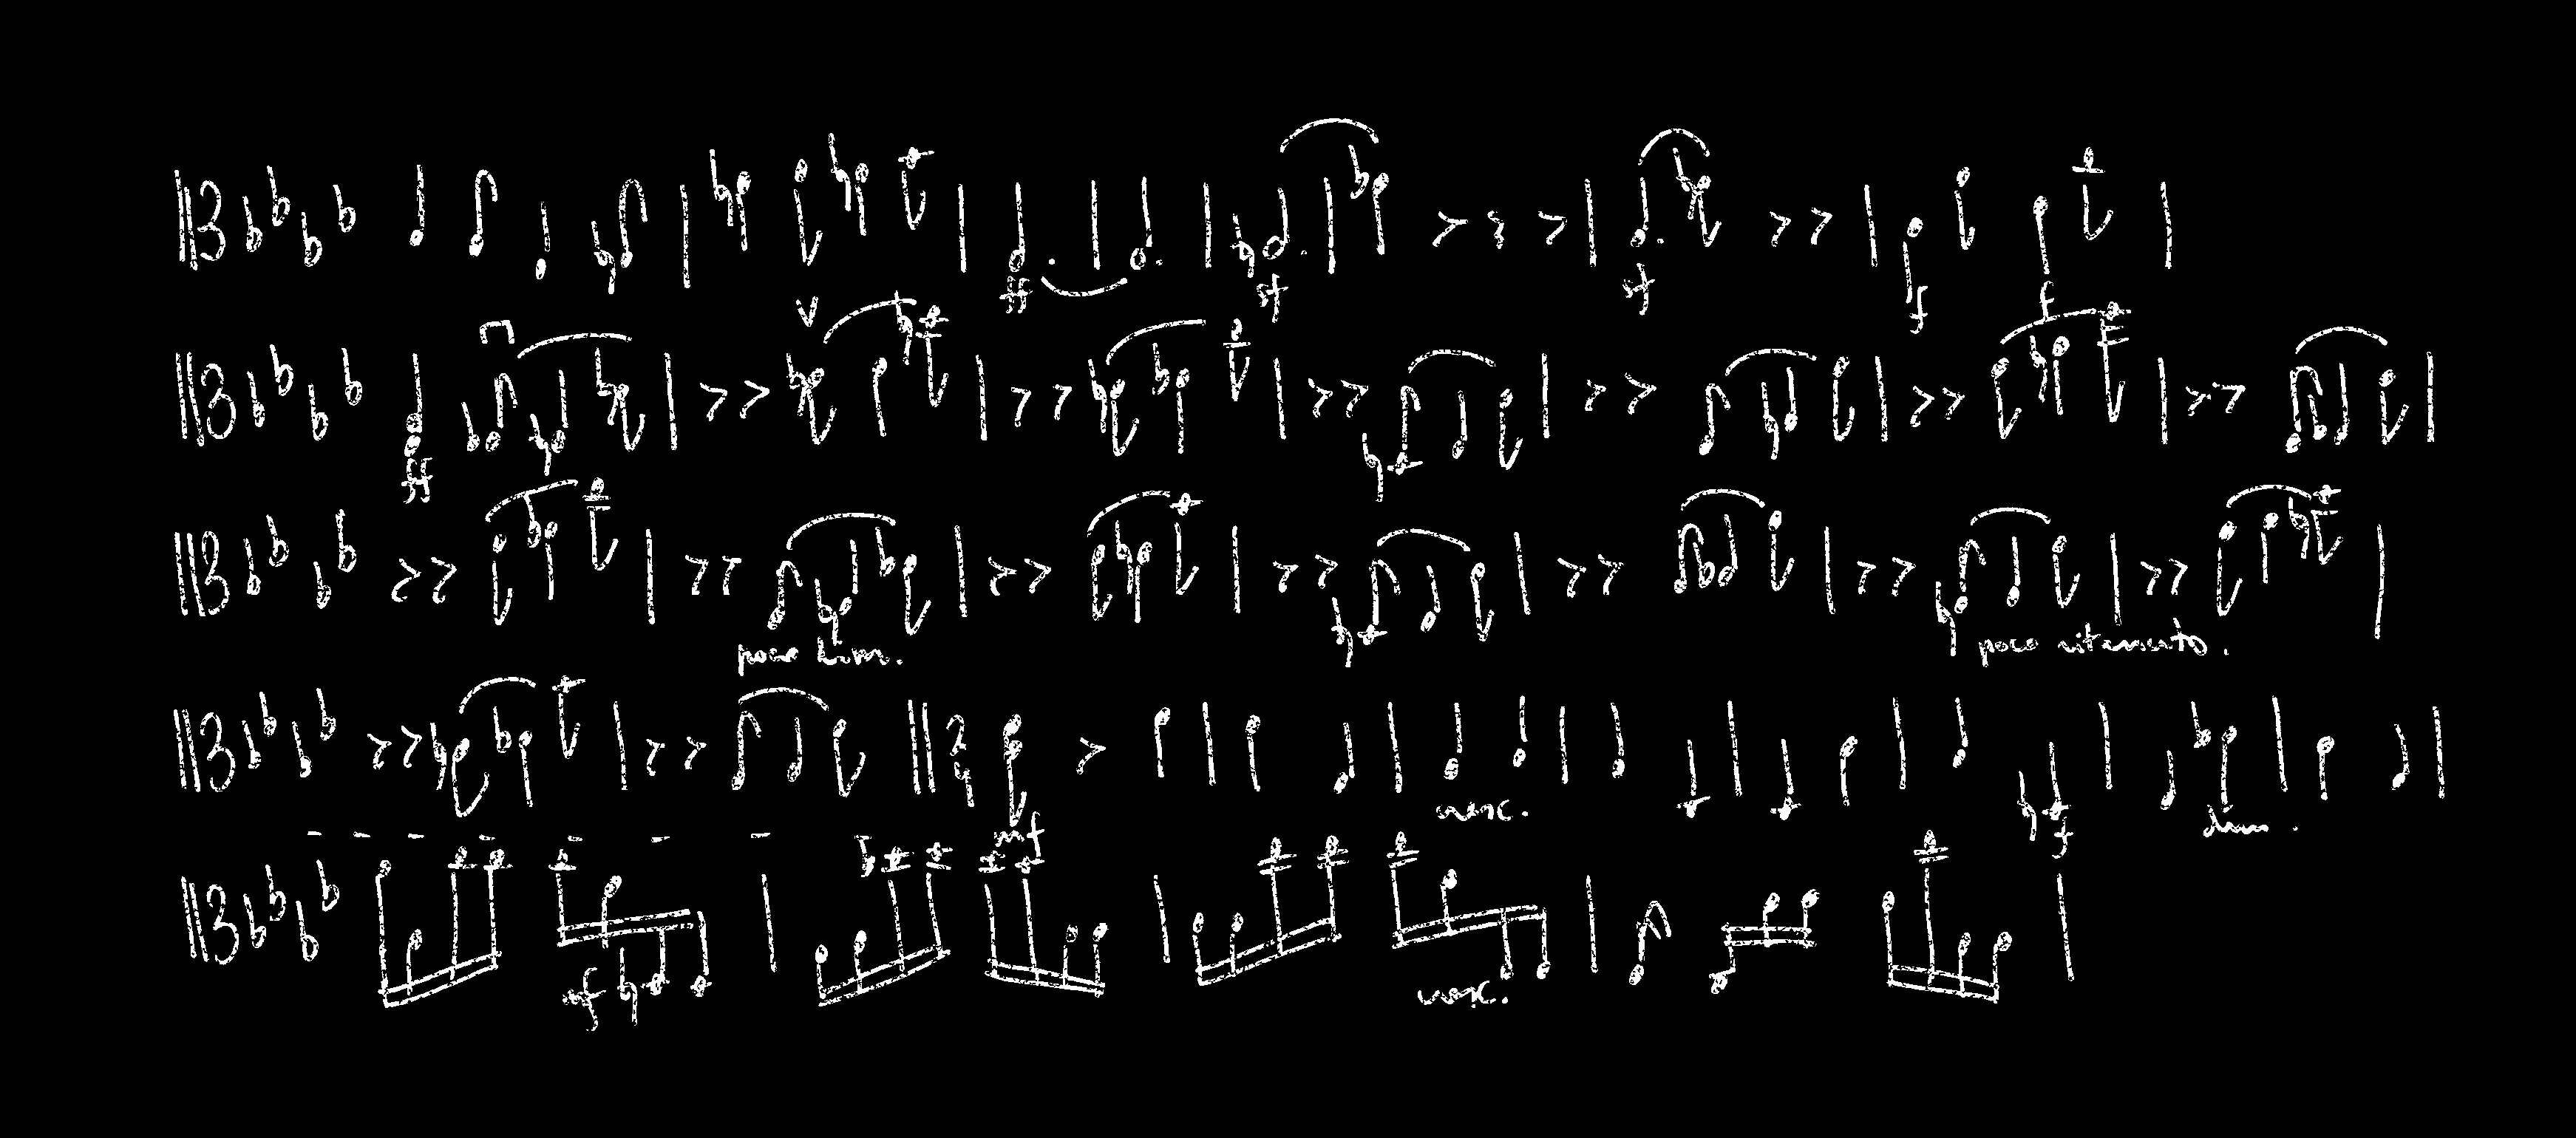 ff sf sf f f
ff
poco dim. poco ritenuto.
mf cresc. f dim.
mf cresc.